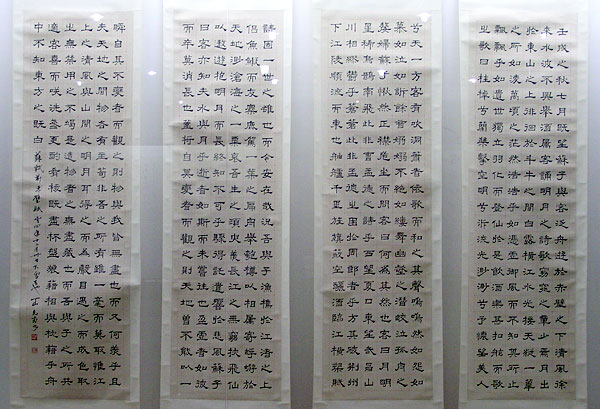 壬戌之秋七月既望蘇子與客泛舟遊於赤壁之下清風徐
來水波不興舉酒屬客誦明月之詩歌窈窕之章少焉月出
於東山之上徘徊於斗牛之間白露橫江水光接天縱一葦
之所如淩萬頃之茫然浩浩乎如憑虛御風而不知其所止
飄飄乎如遺世獨立羽化而登仙於是飲酒樂甚扣舷而歌
之歌曰桂棹兮蘭槳擊空明兮泝流光渺渺兮予懷望美人
兮天一方客有吹洞簫者依歌而和之其聲嗚嗚然如怨如
慕如泣如訴餘音嫋嫋不絕如縷舞幽壑之潛蛟泣孤舟之
嫠婦蘇子愀然正襟危坐而問客曰何為其然也客曰月明
星稀烏鵲南飛此非曹孟德之詩乎西望夏口東望武昌山
川相繆鬱乎蒼蒼此非孟德之困於周郎者乎方其破荊州
下江陵順流而東也舳艫千里旌旗蔽空釃酒臨江橫槊賦
詩固一世之雄也而今安在哉況吾與子漁樵於江渚之上
侶魚蝦而友麋鹿駕一葉之扁舟舉匏樽以相屬寄蜉蝣於
天地渺滄海之一粟哀吾生之須臾羨長江之無窮挾飛仙
以遨遊抱明月而長終知不可乎驟得託遺響於悲風蘇子
曰客亦知夫水與月乎逝者如斯而未嘗往也盈虛者如彼
而卒莫消長也蓋將自其變者而觀之則天地曾不能以一
瞬自其不變者而觀之則物與我皆無盡也而又何羨乎且
夫天地之間物各有主苟非吾之所有雖一毫而莫取惟江
上之清風與山間之明月耳得之而為聲目遇之而成色取
之無禁用之不竭是造物者之無盡藏也而吾與子之所共
適客喜而笑洗盞更酌肴核既盡杯盤狼藉相與枕藉乎舟
中不知東方之既白 蘇軾前赤壁賦